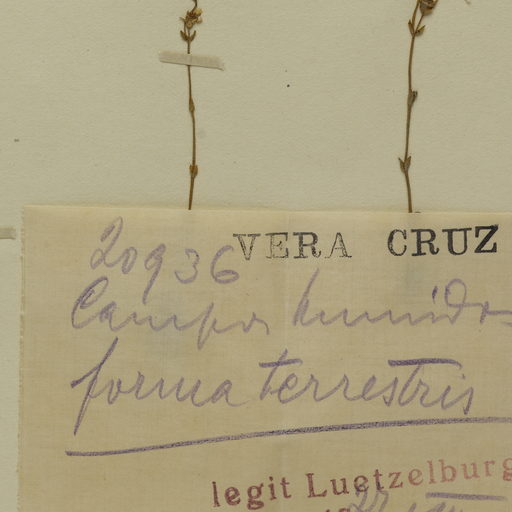 VERA CRUZ
20936
Campos humidos
forma terrestris
legit Luetzelburg